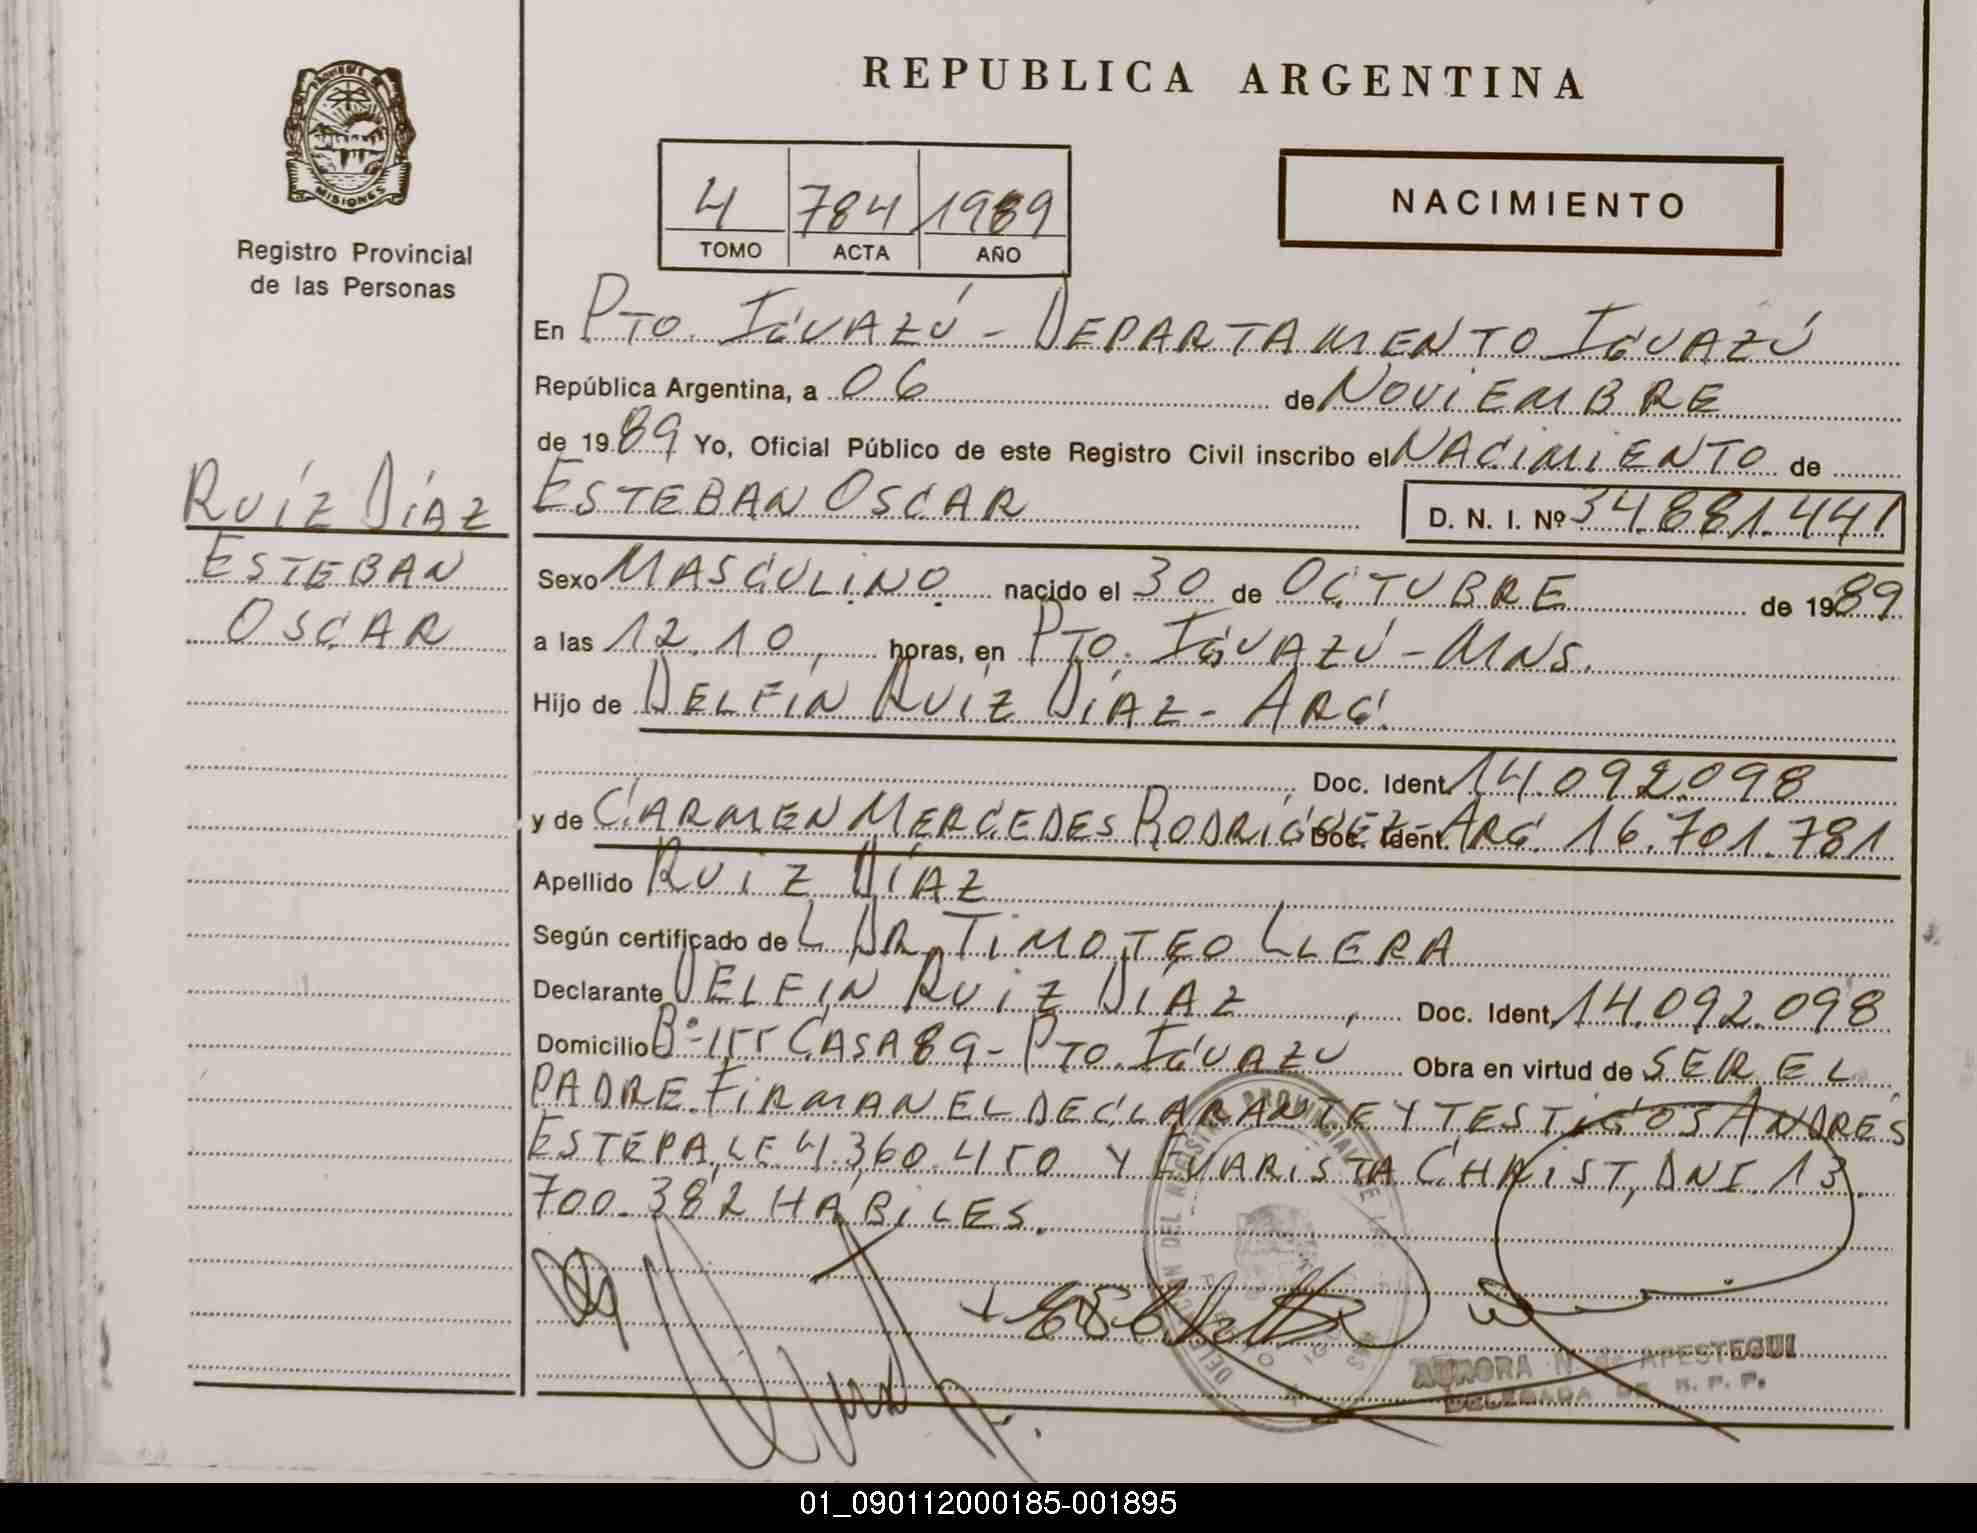 REPUBLICA ARGENTINA
PROVINCIA DE
MISIONES
Registro Provincial
de las Personas
4 784 1989
TOMO ACTA AÑO
NACIMIENTO
En PTO. IGUAZÚ - DEPARTAMENTO IGUAZÚ
República Argentina, a 06 de NOVIEMBRE
de 1989 Yo, Oficial Público de este Registro Civil inscribo el NACIMIENTO de
RUÍZ DÍAZ
ESTEBAN
OSCAR
ESTEBAN OSCAR D. N. I. Nº 34.881.441
Sexo MASCULINO nacido el 30 de OCTUBRE de 1989
a las 12.10, horas, en PTO. IGUAZÚ - MNS.
Hijo de DELFÍN RUÍZ DÍAZ - ARG.
Doc. Ident. 14.092.098
y de CARMEN MERCEDES RODRÍGUEZ - Doc. Ident. ARG. 16.701.781
Apellido RUIZ DÍAZ
Según certificado de L DR. TIMOTEO LLERA
Declarante DELFIN RUIZ DÍAZ, Doc. Ident. 14.092.098
Domicilio Bº-155 CASA 89 - PTO. IGUAZU Obra en virtud de SER EL
PADRE. FIRMAN EL DECLARANTE Y TESTIGOS ANDRÉS
ESTEPA, LE 4.360.450 Y EVARISTA CHRIST, DNI. 13.
700.382 HÁBILES.
AURORA N. de APESTEGUI
DELEGADA DE R. P. P.
01_090112000185-001895